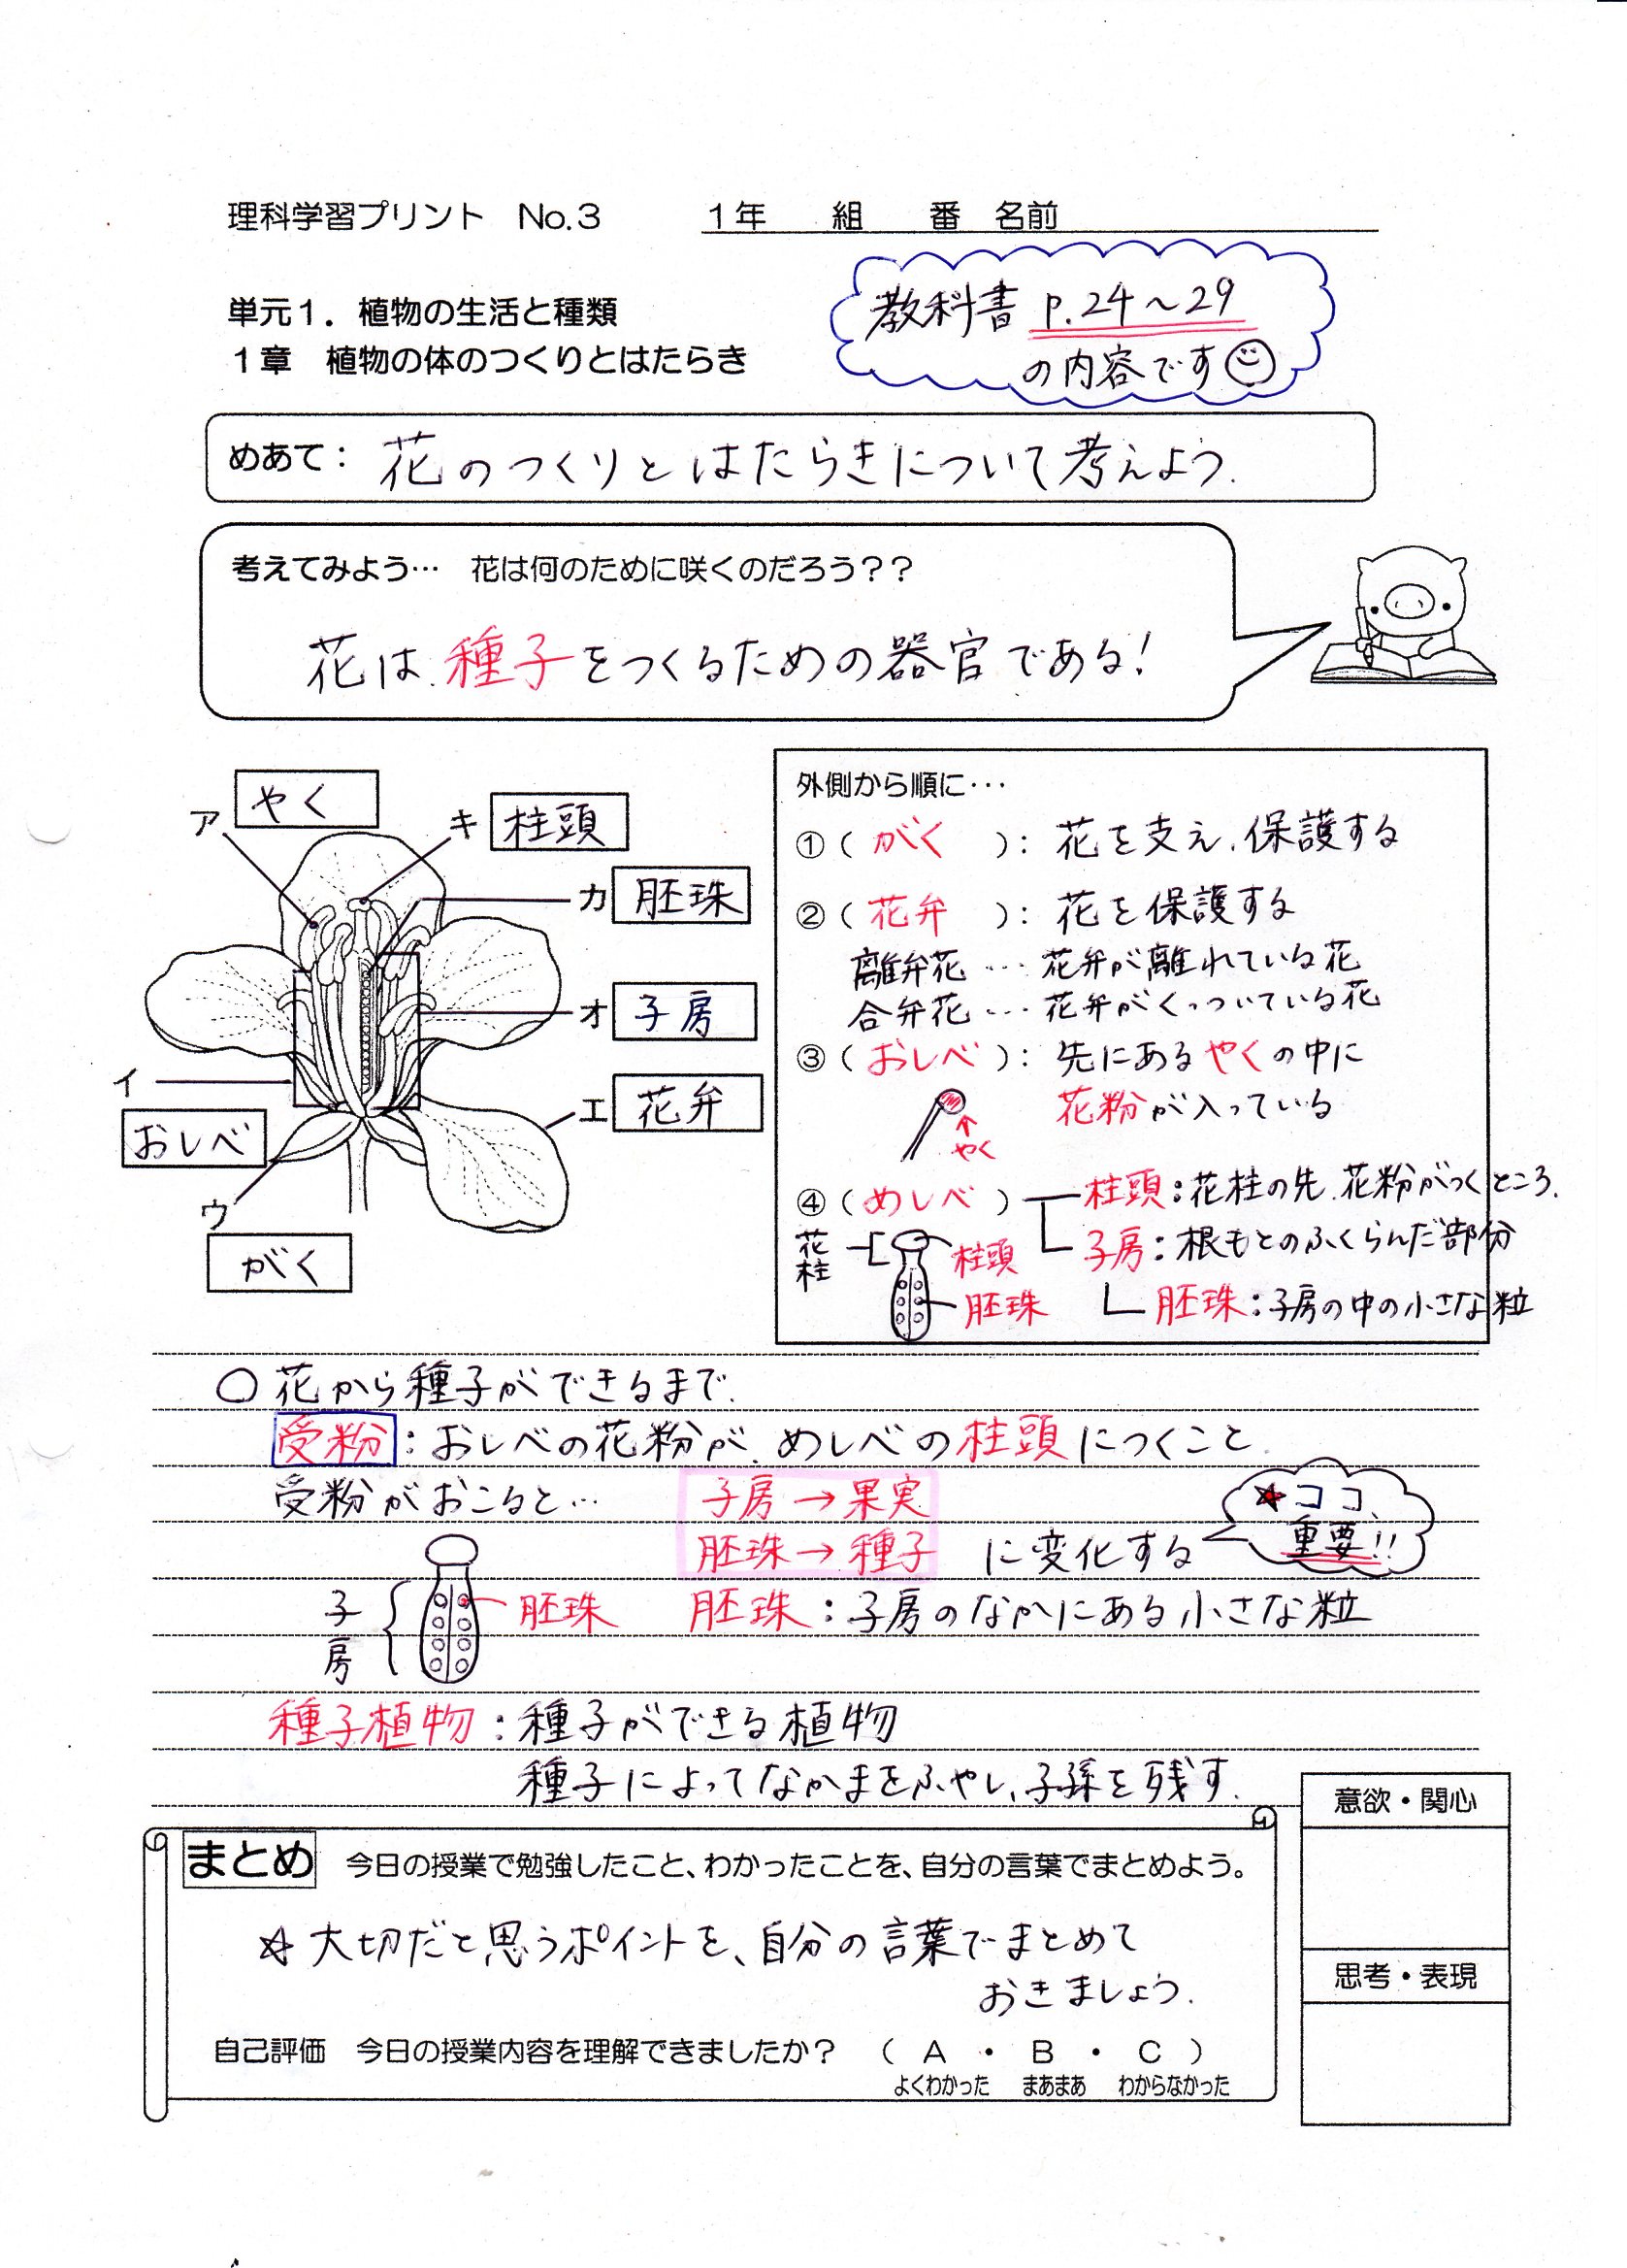 理科学習プリント No.3 1年 組 番 名前
単元1．植物の生活と種類
1章 植物の体のつくりとはたらき
教科書 p.24～29
の内容です
めあて： 花のつくりとはたらきについて考えよう.
考えてみよう… 花は何のために咲くのだろう？？
花は、種子をつくるための器官である!
ア やく
キ 柱頭
カ 胚珠
オ 子房
イ おしべ
エ 花弁
ウ がく
外側から順に…
①（ がく ）： 花を支え、保護する
②（ 花弁 ）： 花を保護する
離弁花 … 花弁が離れている花
合弁花 … 花弁がくっついている花
③（ おしべ ）： 先にあるやくの中に
花粉が入っている
やく
④（ めしべ ） 柱頭：花柱の先.花粉がつくところ.
子房：根もとのふくらんだ部分
胚珠：子房の中の小さな粒
花柱
柱頭
胚珠
○ 花から種子ができるまで.
受粉：おしべの花粉が、めしべの柱頭につくこと.
受粉がおこると… 子房→果実
胚珠→種子 に変化する
★ココ
重要!!
子房
胚珠 胚珠：子房のなかにある小さな粒
種子植物：種子ができる植物
種子によってなかまをふやし、子孫を残す.
まとめ 今日の授業で勉強したこと、わかったことを、自分の言葉でまとめよう。
☆大切だと思うポイントを、自分の言葉でまとめて
おきましょう.
自己評価 今日の授業内容を理解できましたか？ （ A ・ B ・ C ）
よくわかった まあまあ わからなかった
意欲・関心
思考・表現